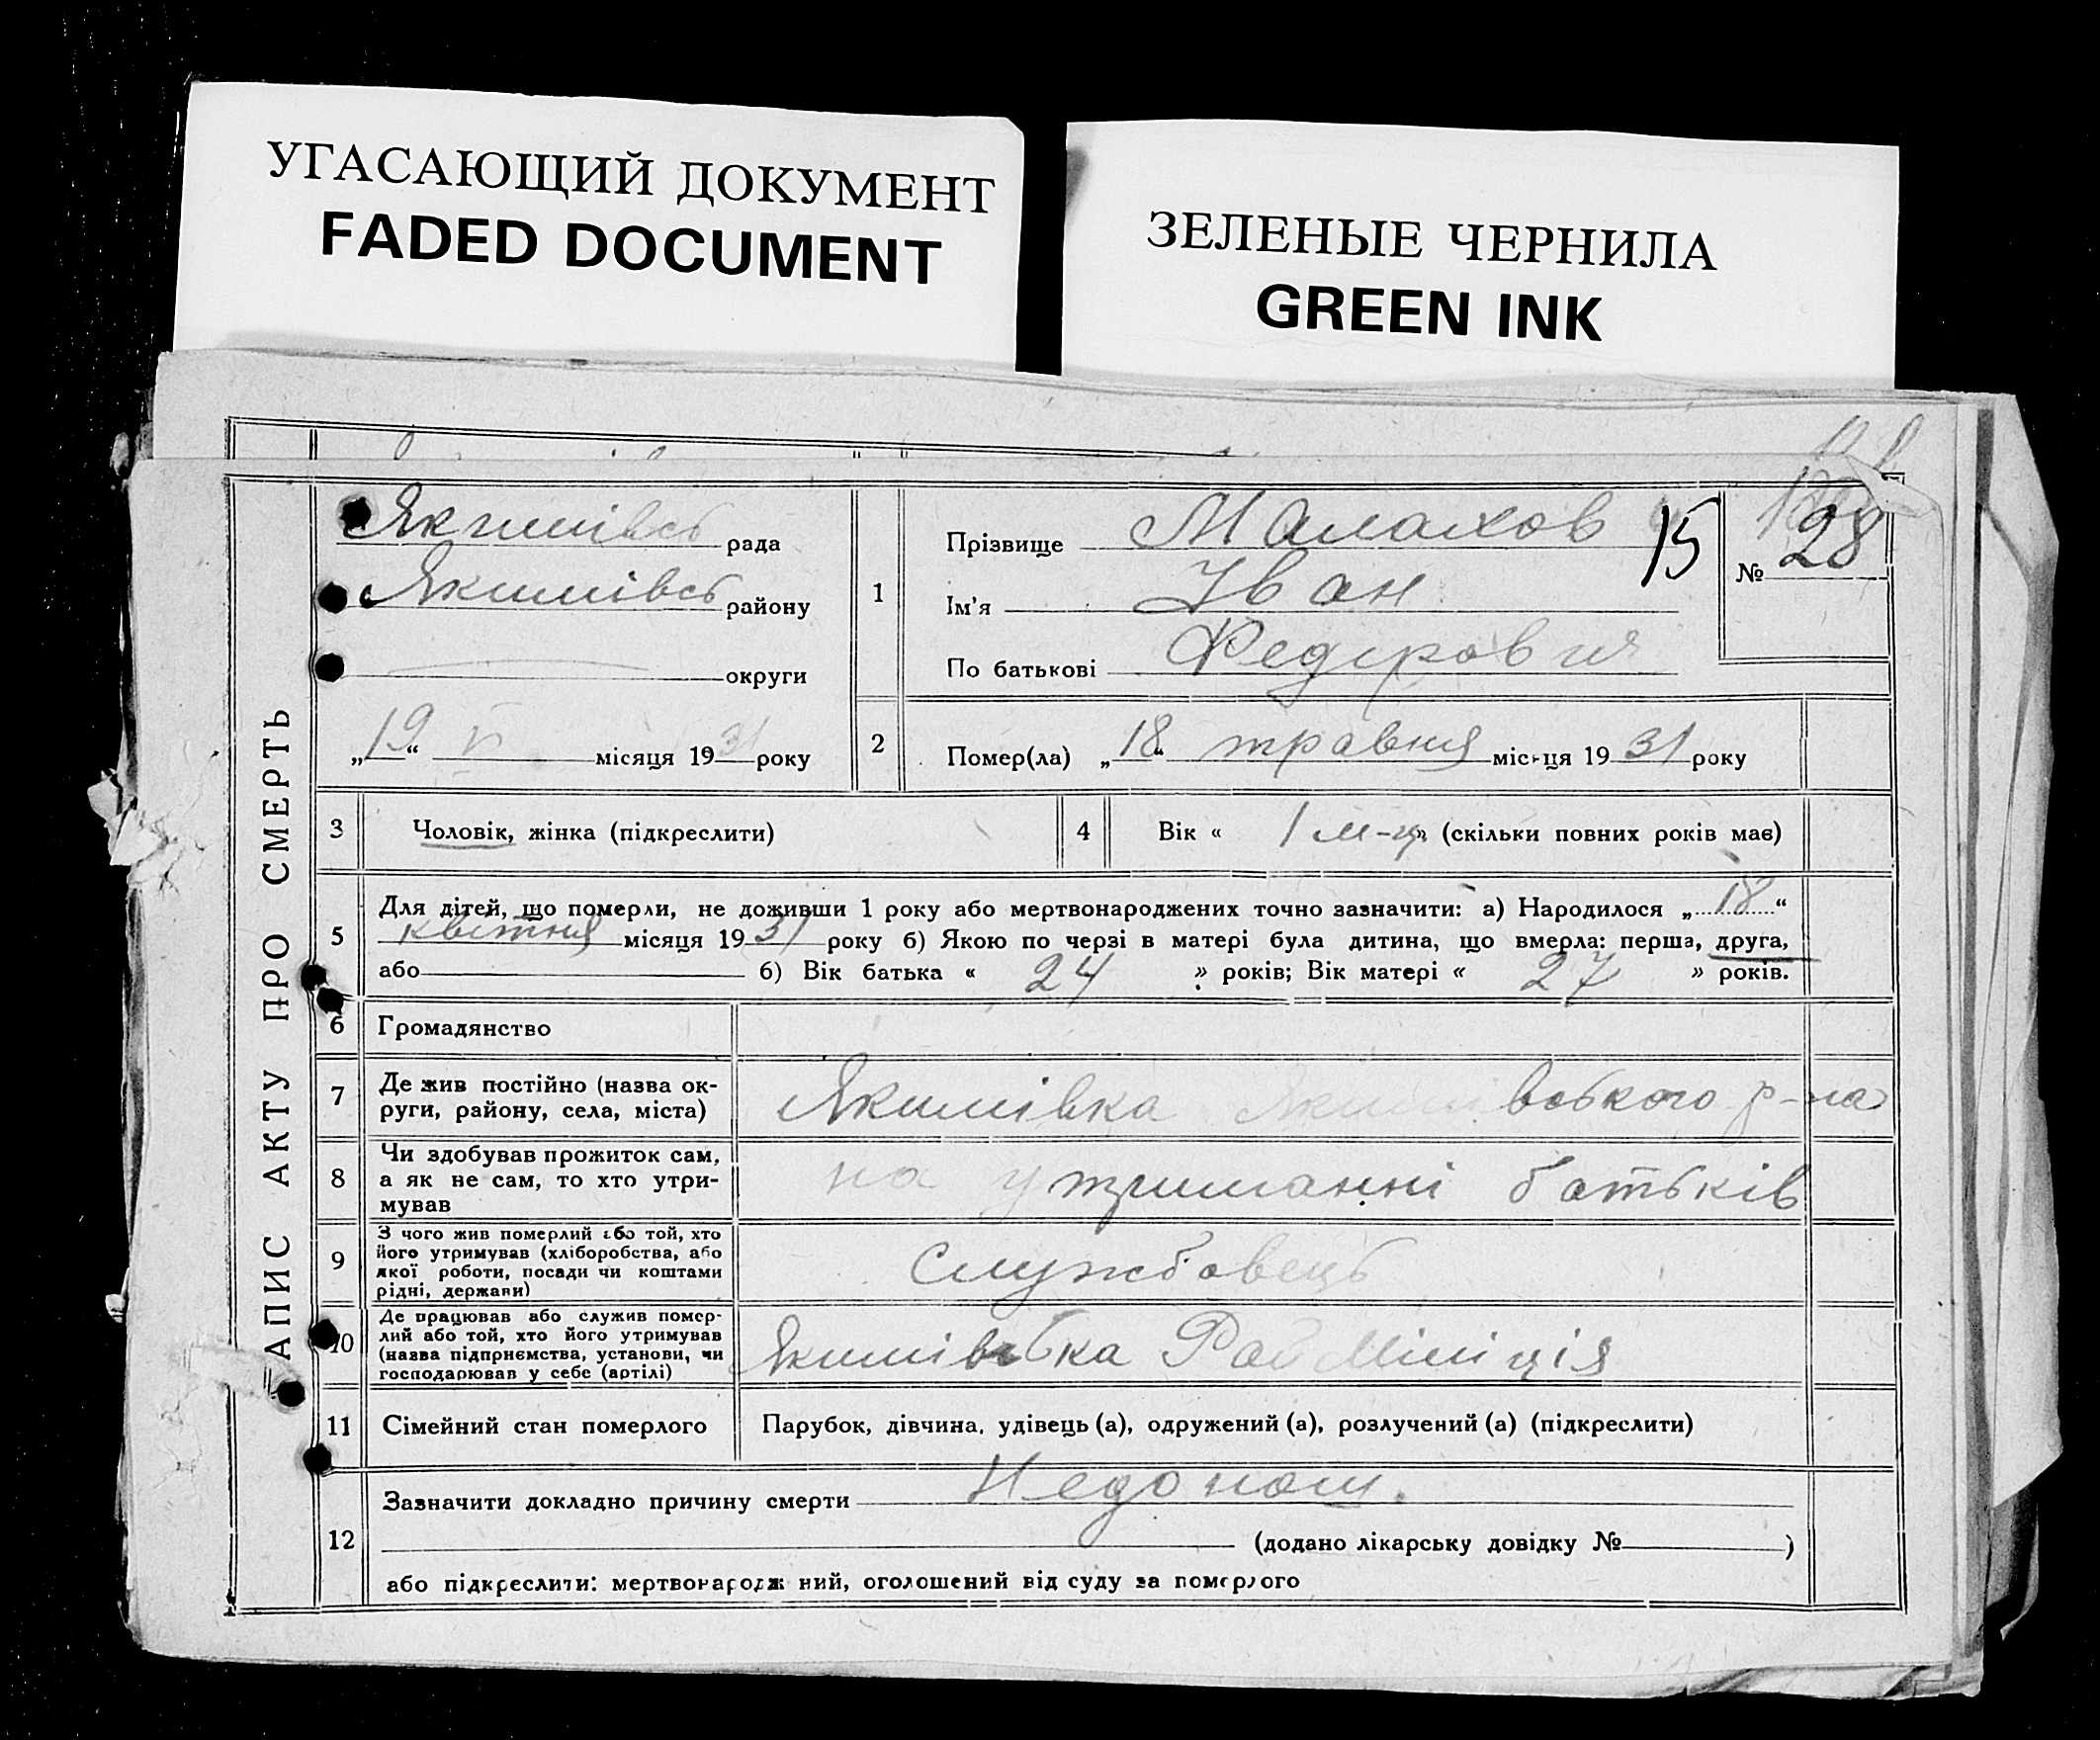 УГАСАЮЩИЙ ДОКУМЕНТ
FADED DOCUMENT
ЗЕЛЕНЫЕ ЧЕРНИЛА
GREEN INK
АПИС АКТУ ПРО СМЕРТЬ
Якимівсь рада
Якимівсь району
округи
„19“ V місяця 1931 року
1
Прізвище Малахов 15
Ім'я Іван
По батькові Федірович
№ 28
2 Помер(ла) „18“ травня місяця 1931 року
3 Чоловік, жінка (підкреслити)
4 Вік « 1 м-ць » (скільки повних років має)
5 Для дітей, що померли, не доживши 1 року або мертвонароджених точно зазначити: а) Народилося „18“
квітня місяця 1931 року б) Якою по черзі в матері була дитина, що вмерла: перша, друга,
або б) Вік батька « 24 » років; Вік матері « 27 » років.
6 Громадянство
7 Де жив постійно (назва ок-
руги, району, села, міста)
Якимівка Якимівського р-на
8 Чи здобував прожиток сам,
а як не сам, то хто утри-
мував
на утриманні батьків
9 З чого жив померлий або той, хто
його утримував (хліборобства, або
якої роботи, посади чи коштами
рідні, держави)
Службовець
10 Де працював або служив помер-
лий або той, хто його утримував
(назва підприємства, установи, чи
господарював у себе (артілі)
Якимівська Рай Міліція
11 Сімейний стан померлого
Парубок, дівчина, удівець (а), одружений (а), розлучений (а) (підкреслити)
12 Зазначити докладно причину смерти Недонош.
(додано лікарську довідку № )
або підкреслити: мертвонародж ний, оголошений від суду за померлого